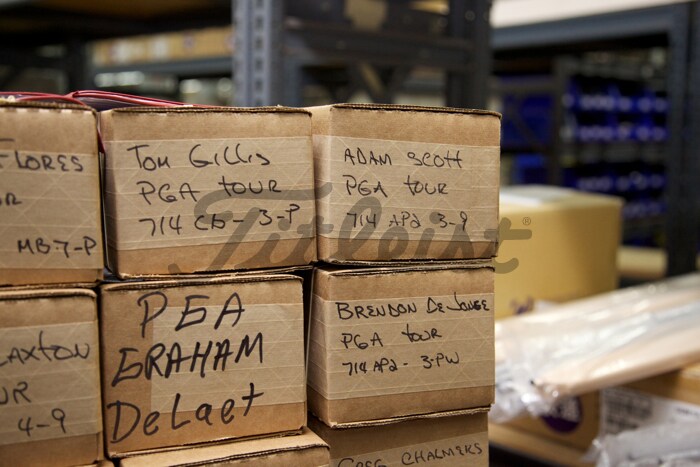 FLORES
MB 7-P
Tom Gillis
PGA TOUR
714 CB - 3-P
ADAM SCOTT
PGA TOUR
714 AP2 3-9
Titleist®
LAXTON
UR
4-9
PGA
GRAHAM
DeLaet
BRENDON DE JONGE
PGA TOUR
714 AP2 - 3-PW
GREG CHALMERS